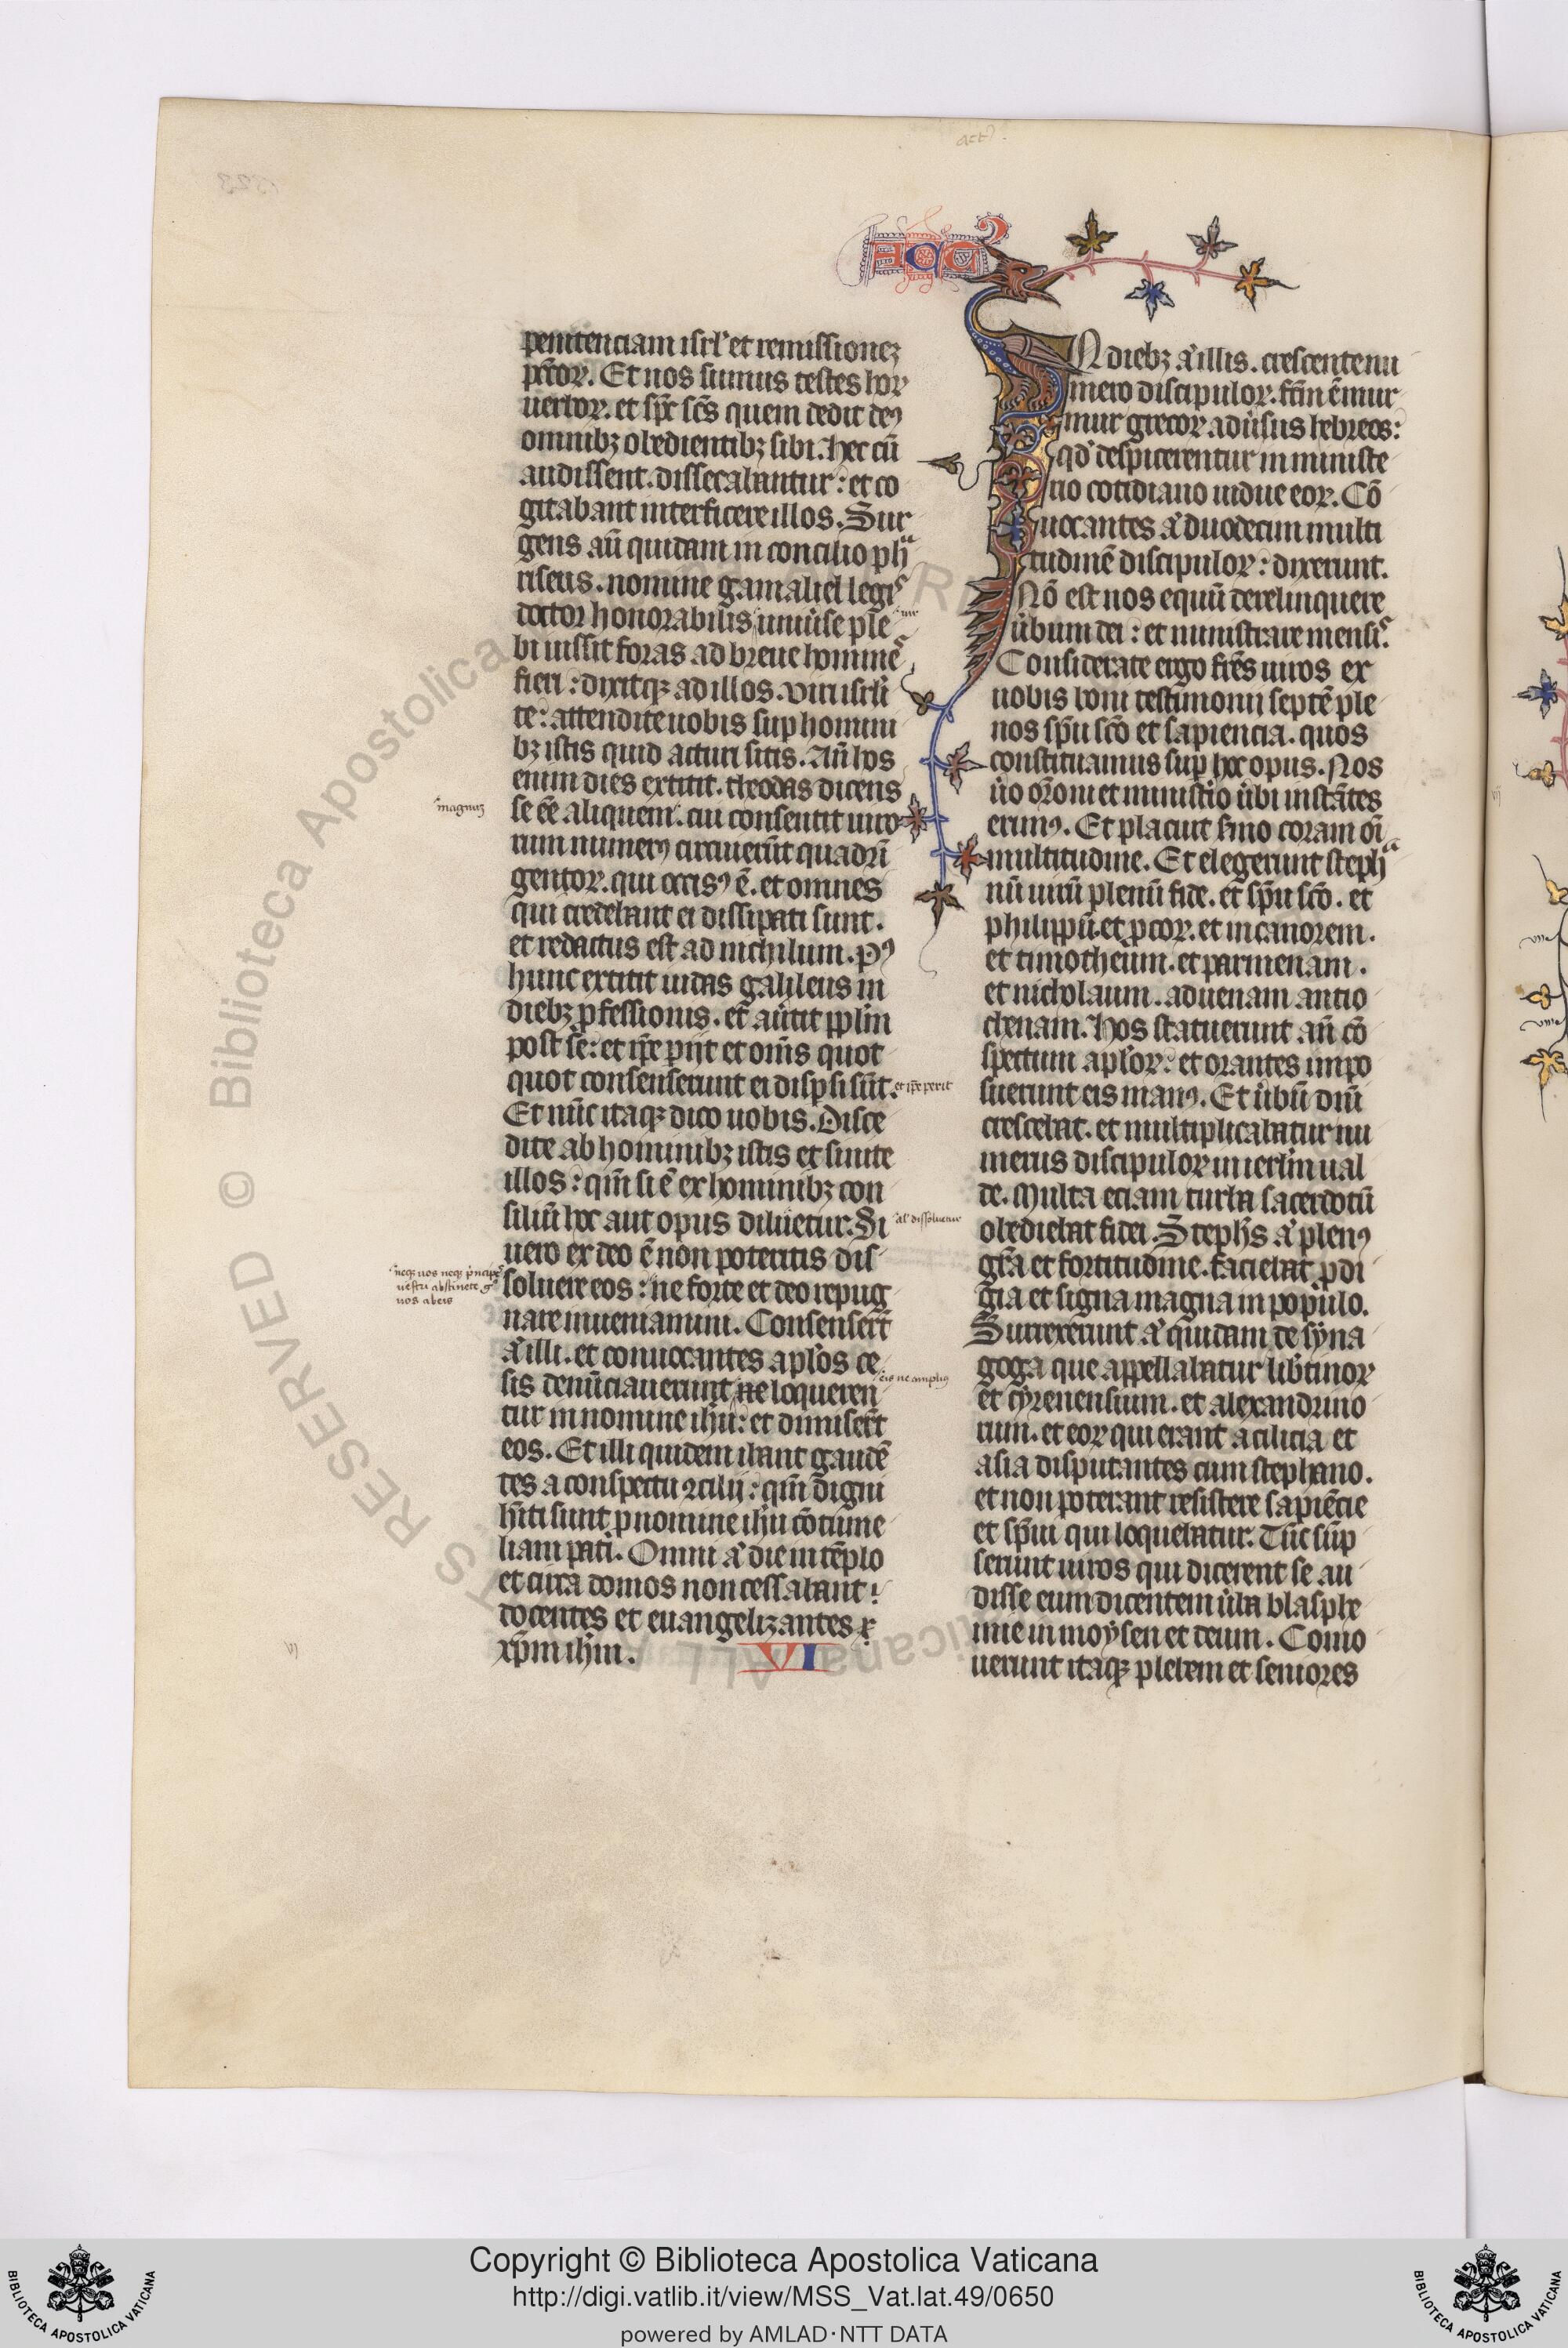 ACT
penitenciam isrl' et remissionez
pctor. Et nos sumus testes hor
uerbor. et spc scs quem dedit deꝯ
omnibꝫ obedientibꝫ sibi. Hec cū
audissent. dissecabantur: et co
gitabant interficere illos. Sur
gens aū quidam in concilio pha
riseus. nomine gamaliel legis
doctor honorabilis uniuse ple
bi iussit foras ad breue homines
fieri: dixitqꝫ ad illos. Viri isrli
te: attendite uobis sup homini
bꝫ istis quid acturi sitis. An hos
enim dies extitit. theodas dicens
magnuꝫ
se eē aliquem. cui consentit uiro
rum numerꝯ circiuerūt quadri
gentor. qui occisꝯ ē. et omnes
qui credebant ei dissipati sunt.
et redactus est ad nichilum. Pꝯ
hunc extitit iudas galileus in
diebꝫ pfessionis. et aūtit pplm
post se: et ipe pijt et oms quot
quot consenserunt ei dispsi sūt.
et ipe perit
Et nūc itaqꝫ dico uobis. Disce
dite ab hominibꝫ istis et sinite
illos: qm si ē ex hominibꝫ con
siliū hoc aut opus diluetur. Si
al' dissoluetur
uero ex deo ē non poteritis dis
neqꝫ uos neqꝫ pncipes
uestri abstinete g°
uos ab eis
soluere eos: ne forte et deo repug
nare inueniamini. Consenserūt
aͥ illi. et conuocantes aplos ce
sis denūciauerunt ne loqueren
eis ne ampliꝯ
tur in nomine ihu: et dimiserūt
eos. Et illi quidem ibant gaudē
tes a conspectu ꝯcilij: qm digni
hīti sunt p nomine ihu cōtume
liam pati. Omni aͥ die in tēplo
et circa domos non cessabant:
docentes et euangelizantes
xpm ihm. VI
IN diebꝫ aͥ illis. crescente nu
mero discipulor. fcm ē mur
mur grecor adusus hebreos:
qd despicerentur in ministe
rio cotidiano uidue eor. Cō
uocantes aͥ duodecim multi
tudinē discipulor: dixerunt.
Nō est nos equū derelinquere
ubum dei: et ministrare mensis.
Considerate ergo fres uiros ex
uobis boni testimonij septē ple
nos spu sco et sapiencia. quos
constituamus sup hoc opus. Nos
uo oroni et ministio ubi instātes
erimꝯ. Et placuit smo coram oi
multitudine. Et elegerunt stepha
nū uirū plenū fide. et spu sco. et
philippū. et pcor. et nicanorem.
et timotheum. et parmenam.
et nicholaum. aduenam antio
chenam. Hos statuerunt an cō
spectum aplor: et orantes impo
suerunt eis manꝯ. Et ubū dni
crescebat. et multiplicabatur nu
merus discipulor in ierlm ual
de. Multa eciam turba sacerdotū
obediebat fidei. Stephs aͥ plenꝯ
gra et fortitudine. faciebat pdi
gia et signa magna in populo.
Surrexerunt aͥ quidam de syna
goga que appellabatur libtinor
et cyrenensium. et alexandrino
rum. et eor qui erant a cilicia et
asia disputantes cum stephano.
et non poterant resistere sapiēcie
et spui qui loquebatur. Tūc sūp
serunt uiros qui dicerent se au
disse eum dicentem uba blasphe
mie in moysen et deum. Como
uerunt itaqꝫ plebem et seniores
© Biblioteca Apostolica Vaticana ALL RIGHTS RESERVED
BIBLIOTECA APOSTOLICA VATICANA
Copyright © Biblioteca Apostolica Vaticana
http://digi.vatlib.it/view/MSS_Vat.lat.49/0650
powered by AMLAD·NTT DATA
BIBLIOTECA APOSTOLICA VATICANA